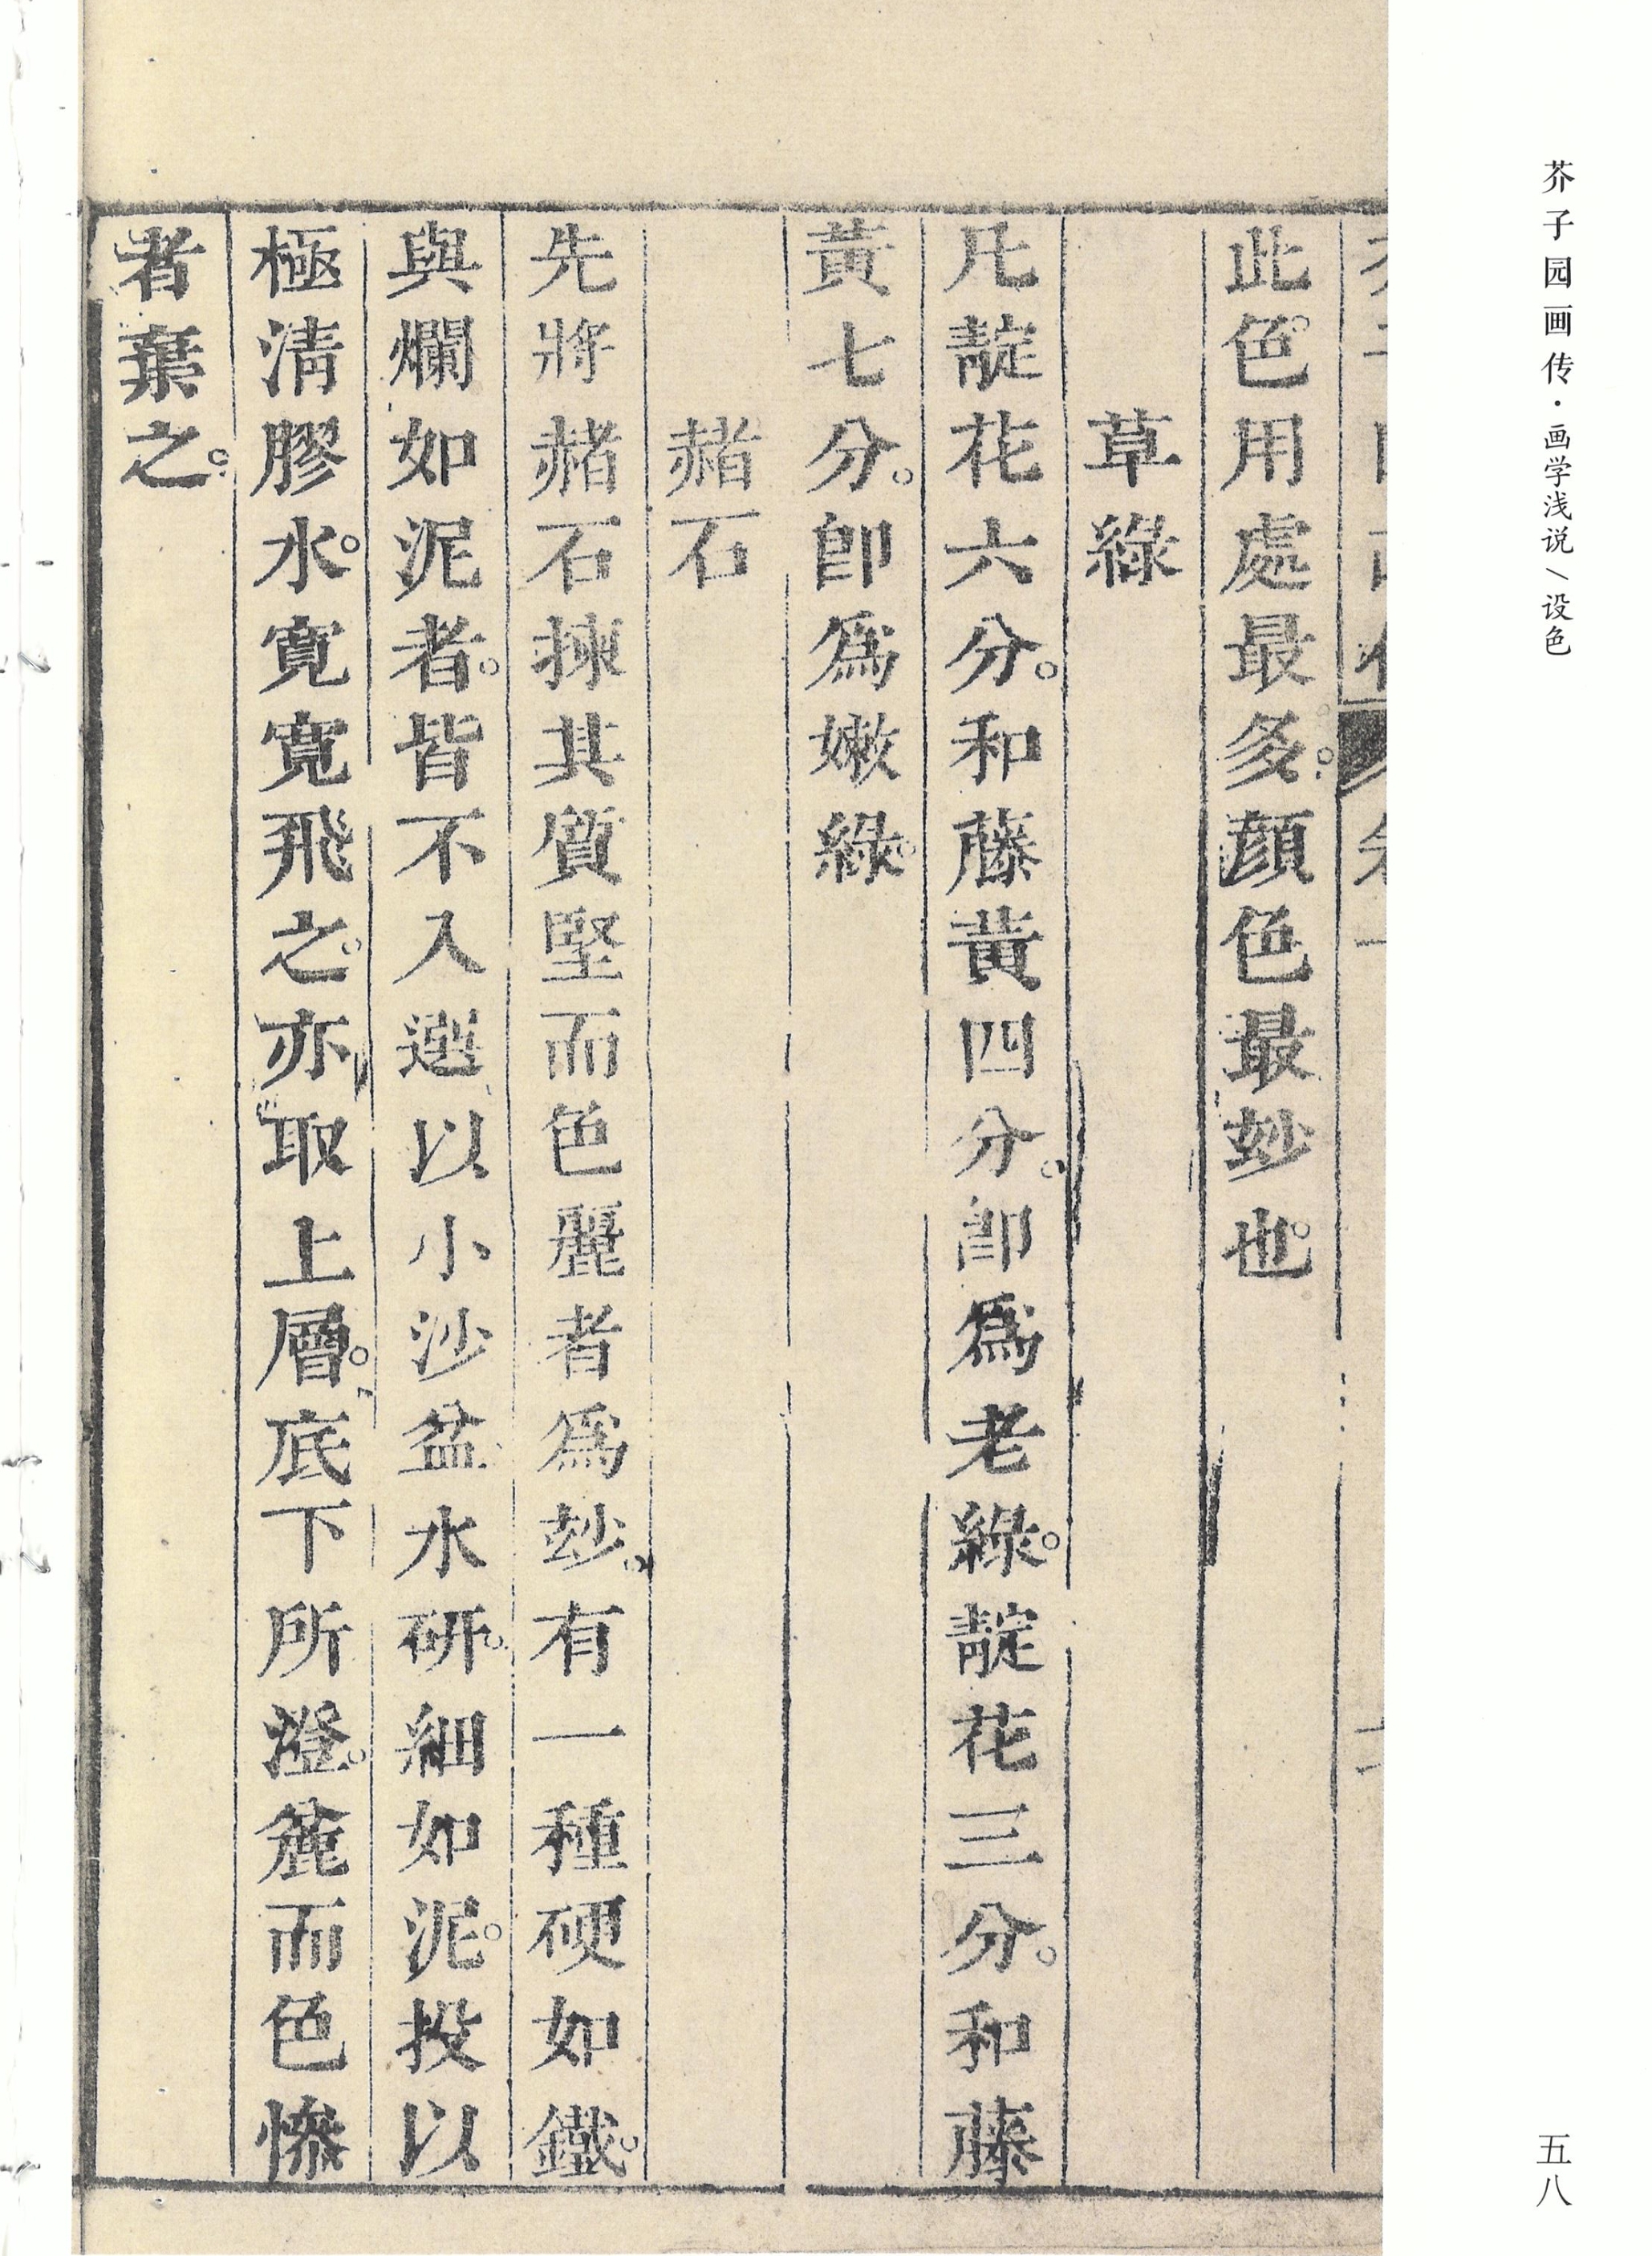 芥子园画传·画学浅说/设色
五八
此色用處最多。顏色最玅也。
草綠
凡靛花六分。和藤黃四分。卽爲老綠。靛花三分。和藤
黃七分。卽爲嫩綠。
赭石
先將赭石揀其質堅而色麗者爲玅。有一種硬如鐵。
與爛如泥者。皆不入選以小沙盆水研。細如泥。投以
極清膠水。寬寬飛之。亦取上層。底下所澄。麄而色慘
者棄之。